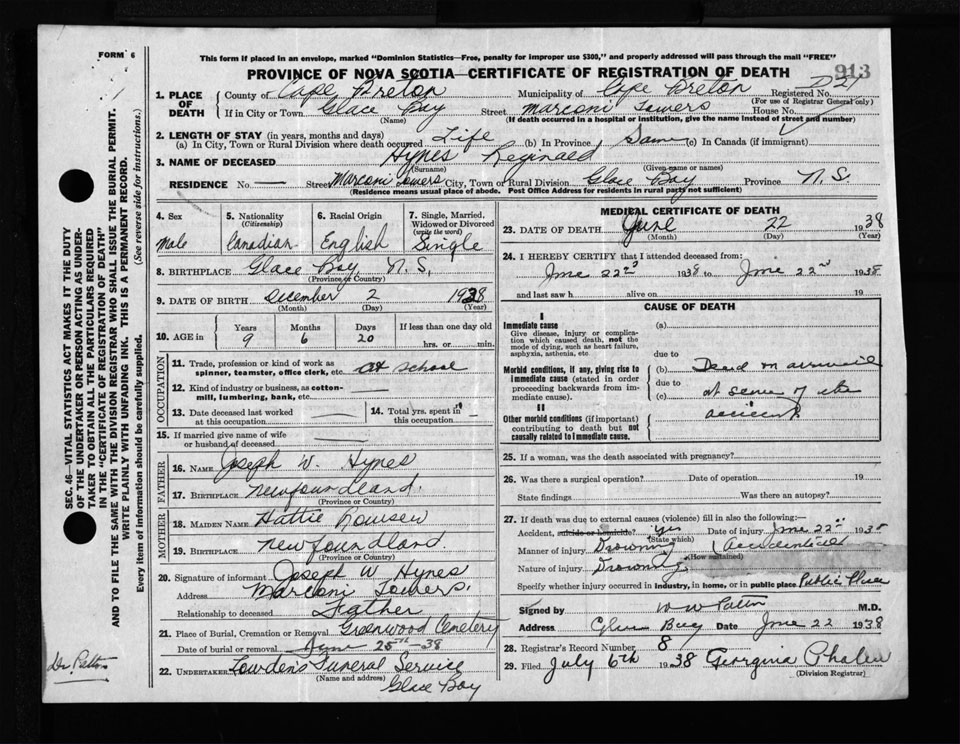 FORM 6
This form if placed in an envelope, marked "Dominion Statistics—Free, penalty for improper use $300," and properly addressed will pass through the mail "FREE"
PROVINCE OF NOVA SCOTIA—CERTIFICATE OF REGISTRATION OF DEATH
913
1. PLACE OF DEATH
County of Cape Breton Municipality of Cape Breton Registered No.
(For use of Registrar General only)
If in City or Town Glace Bay Street Marconi Towers House No.
(Name) (If death occurred in a hospital or institution, give the name instead of street and number)
2. LENGTH OF STAY (in years, months and days)
(a) In City, Town or Rural Division where death occurred Life (b) In Province Same (c) In Canada (if immigrant)
3. NAME OF DECEASED Hynes Reginald
(Surname) (Given name or names)
RESIDENCE No. — Street Marconi Towers City, Town or Rural Division Glace Bay Province N.S.
(Residence means usual place of abode. Post Office Address for residents in rural parts not sufficient)
4. Sex
Male
5. Nationality
(Citizenship)
Canadian
6. Racial Origin
English
7. Single, Married, Widowed or Divorced
(write the word)
Single
8. BIRTHPLACE Glace Bay, N.S.
(Province or Country)
9. DATE OF BIRTH December 2 1928
(Month) (Day) (Year)
10. AGE in
Years Months Days If less than one day old
9 6 20 hrs. or min.
OCCUPATION
11. Trade, profession or kind of work as
spinner, teamster, office clerk, etc. at school
12. Kind of industry or business, as cotton-
mill, lumbering, bank, etc.
13. Date deceased last worked
at this occupation
14. Total yrs. spent in
this occupation
15. If married give name of wife
or husband of deceased
FATHER
16. NAME Joseph W. Hynes
17. BIRTHPLACE Newfoundland.
(Province or Country)
MOTHER
18. MAIDEN NAME Hattie
19. BIRTHPLACE Newfoundland.
(Province or Country)
20. Signature of informant Joseph W Hynes
Address Marconi Towers.
Relationship to deceased Father
21. Place of Burial, Cremation or Removal Greenwood Cemetery
Date of burial or removal June 25th 38
22. UNDERTAKER Lowden's Funeral Service
(Name and address)
Glace Bay
MEDICAL CERTIFICATE OF DEATH
23. DATE OF DEATH June 22 1938
(Month) (Day) (Year)
24. I HEREBY CERTIFY that I attended deceased from:
June 22nd 1938 to June 22nd 1938
and last saw h alive on 19
CAUSE OF DEATH
I
Immediate cause
Give disease, injury or complication which caused death, not the mode of dying, such as heart failure, asphyxia, asthenia, etc
(a)
due to
Morbid conditions, if any, giving rise to immediate cause (stated in order proceeding backwards from immediate cause).
(b) Dead on arrival
due to
(c) at scene of the
accident
II
Other morbid conditions (if important) contributing to death but not causally related to immediate cause.
25. If a woman, was the death associated with pregnancy?
26. Was there a surgical operation? Date of operation 19
State findings Was there an autopsy?
27. If death was due to external causes (violence) fill in also the following:—
Accident, suicide or homicide? yes Date of injury June 22nd 1938
(State which)
Manner of injury Drowning (Accidental
(How sustained)
Nature of injury Drowning
Specify whether injury occurred in industry, in home, or in public place Public Place
Signed by W W Patton M.D.
Address Glace Bay Date June 22 1938
28. Registrar's Record Number 8
29. Filed July 6th 1938 Georgina Phalen
(Division Registrar)
SEC. 46—VITAL STATISTICS ACT MAKES IT THE DUTY
OF THE UNDERTAKER OR PERSON ACTING AS UNDER-
TAKER TO OBTAIN ALL THE PARTICULARS REQUIRED
IN THE "CERTIFICATE OF REGISTRATION OF DEATH"
AND TO FILE THE SAME WITH THE DIVISION REGISTRAR WHO SHALL ISSUE THE BURIAL PERMIT.
WRITE PLAINLY WITH UNFADING INK. THIS IS A PERMANENT RECORD.
Every item of information should be carefully supplied. (See reverse side for instructions.)
Dr Patton